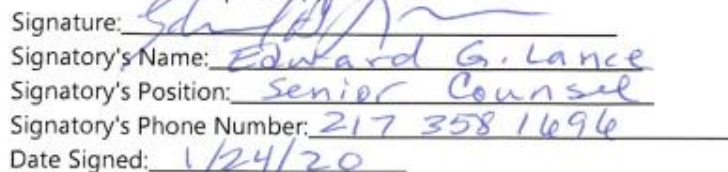 Signature:
Signatory's Name: Edward G. Lance
Signatory's Position: Senior Counsel
Signatory's Phone Number: 217 358 1696
Date Signed: 1/24/20